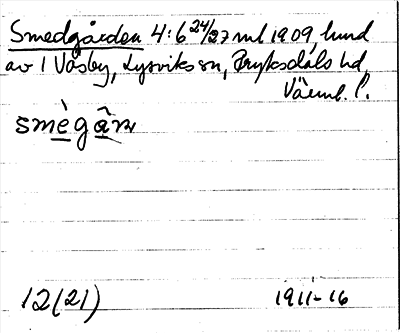 Smedgården 4:6 24/27 mtl 1909, hund
av 1 Våsby, Lysviks sn, Fryksdals hd
Värml. l.
smègâṇ
12(21) 1911-16